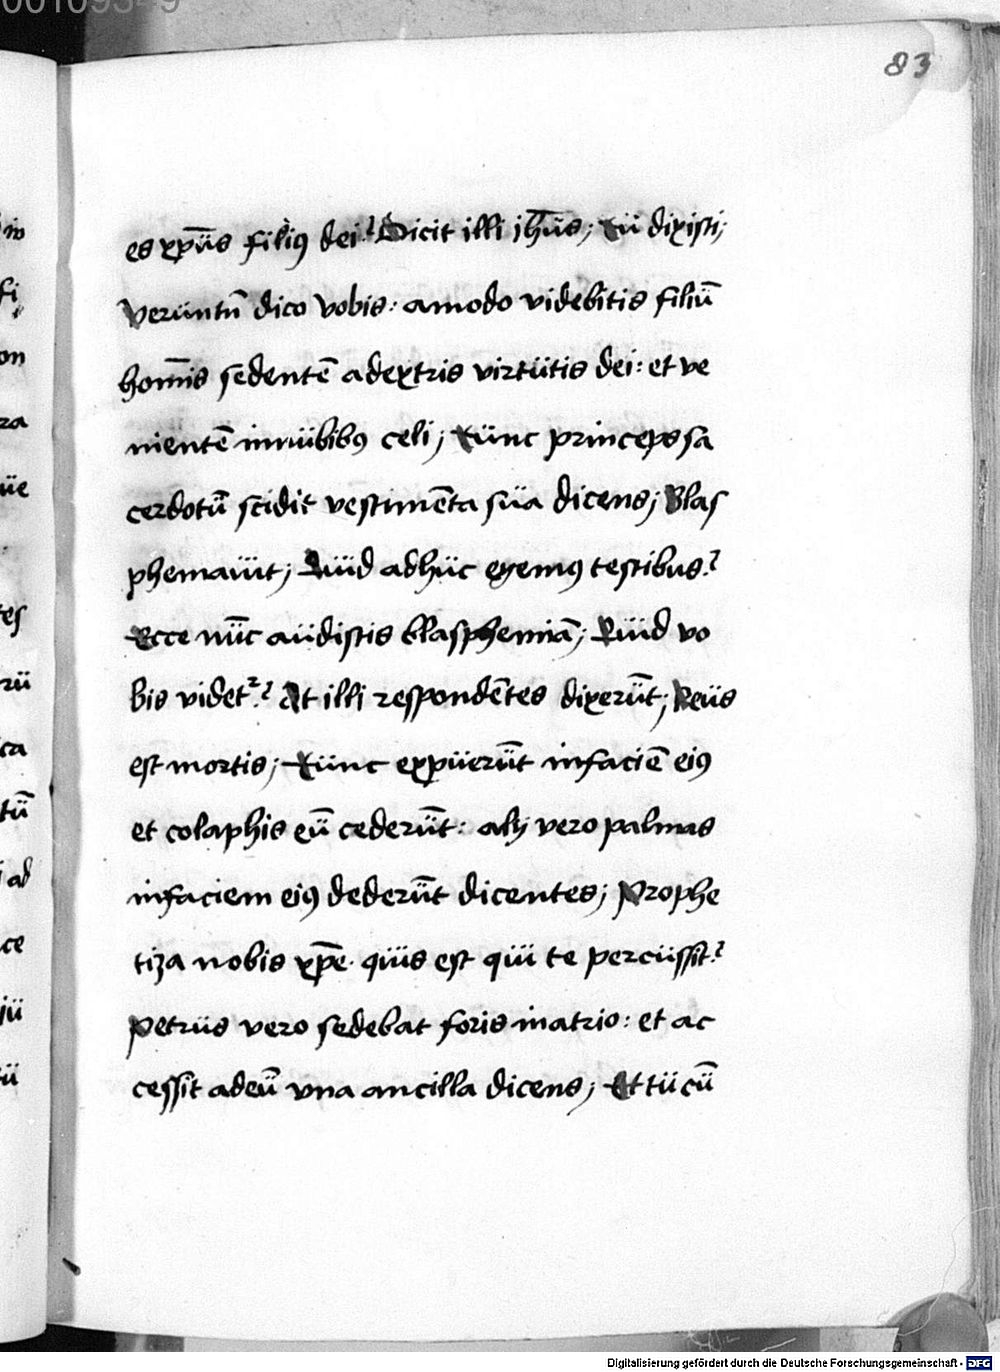 83
es xp̄us filiꝰ dei? Dicit illi jhūs; tu dixisti;
veruntn̄ dico vobis: amodo videbitis filiū
homīs sedentē adextris virtutis dei: et ve
nientē innubibꝰ celi; tunc princeps sa
cerdotū scidit vestimēta sua dicens; Blas
phemauit; Quid adhuc egemꝰ testibus?
Ecce nūc audistis blasphemiā; Quid vo
bis videtᷣ? At illi respondētes dixerūt; Reus
est mortis; tunc expuerūt infaciē eiꝰ
et colaphis eū cederūt: alij vero palmas
infaciem eiꝰ dederūt dicentes; Prophe
tiza nobis xp̄e quis est qui te percussit?
Petrus vero sedebat foris inatrio: et ac
cessit adeū vna ancilla dicens; Et tu cū
Digitalisierung gefördert durch die Deutsche Forschungsgemeinschaft - DFG